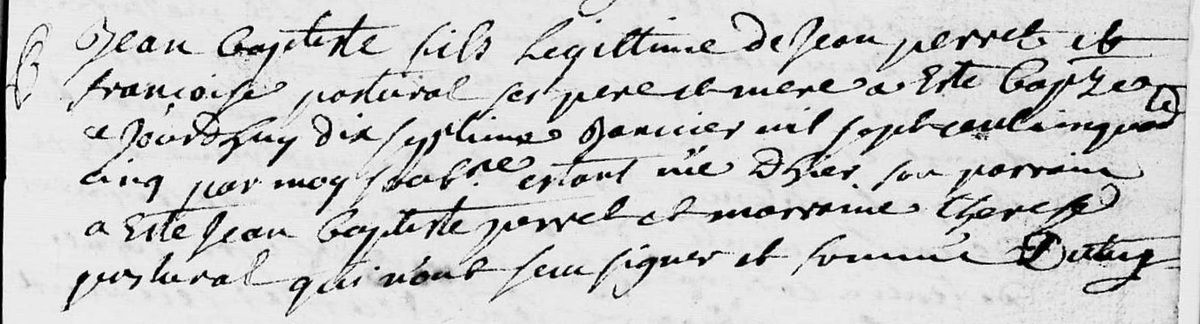 B Jean baptiste fils legittime de Jean perret et
françoise pastural ses pere et mere a Esté baptzé
ce Jourdhuy dix septieme Janvier mil sept cent cinquante
cinq par moy soubne estant né Dhier son parrain
a Esté Jean baptiste perret et marraine therese
pastural qui n'ont sceu signer et sommé